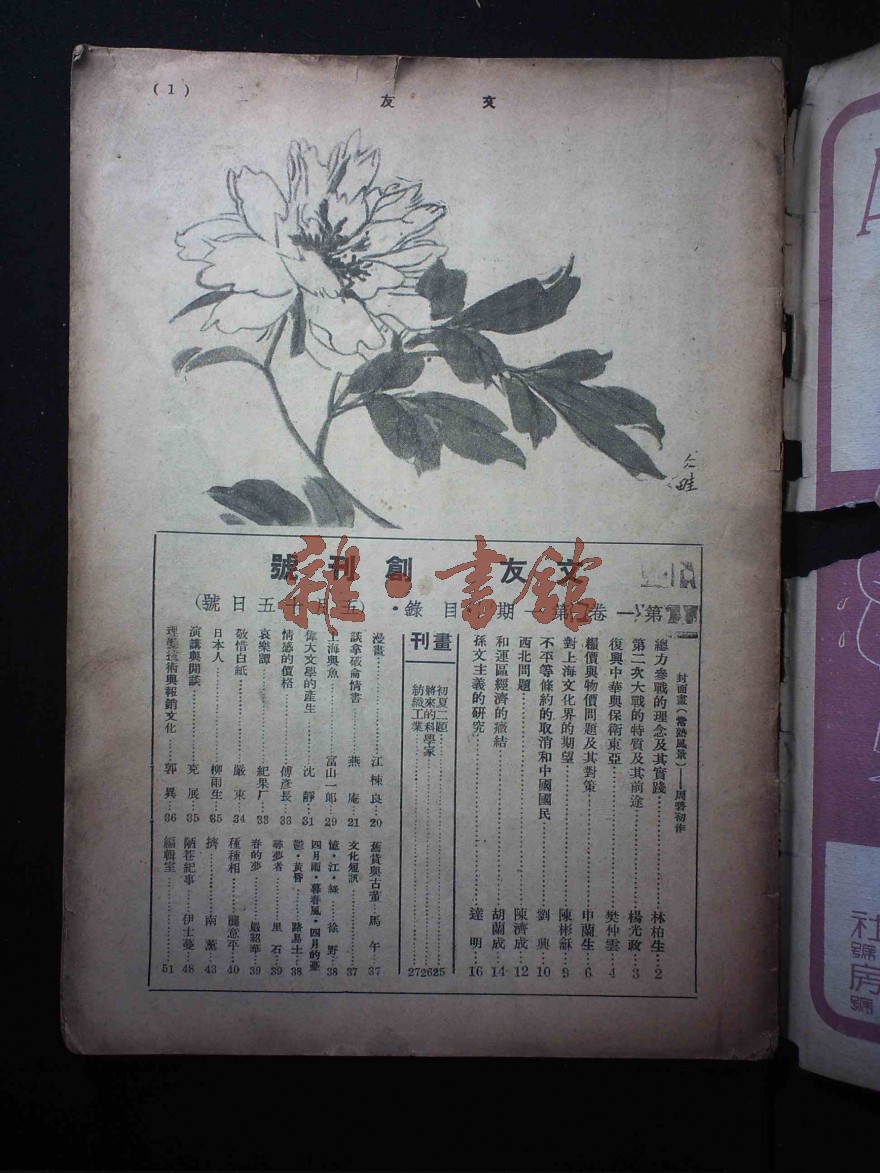 (1)
文友
文友 創刊號
第一卷 第一期 目錄·(五月十五日號)
封面畫(常熟風景)——周碧初作
總力參戰的理念及其實踐……林柏生…2
第二次大戰的特質及其前途……楊光政…3
復興中華與保衛東亞……樊仲雲…4
糧價與物價問題及其對策……申蘭生…6
對上海文化界的期望……陳彬龢…9
不平等條約的取消和中國國民……劉興…10
西北問題……陳濟成…12
和運區經濟的癥結……胡蘭成…14
孫文主義的研究……達明…16
畫刊
初夏二題……25
將來的科學家……26
紡織工業……27
漫畫……江棟良…20
談拿破崙情書……燕庵…21
上海與魚……富山一郎…29
偉大文學的產生……沈靜…31
情感的價格……傅彥長…33
哀樂譚……紀果厂…33
敬惜白紙……嚴束…34
日本人……柳雨生…35
演講與閒談……克展…35
理髮技術與報銷文化……郭異…36
舊貨與古董…馬午…37
文化短訊……37
憶·江·綠…徐野…38
四月雨·暮春風·四月的憂
鬱·黃昏…路易士…38
尋夢者…里石…39
春的夢…嚴韶華…39
種種相…關意平…40
擠…南薰…43
陋巷紀事…伊士曼…48
編輯室……51
雜·書館
社
號
房
號